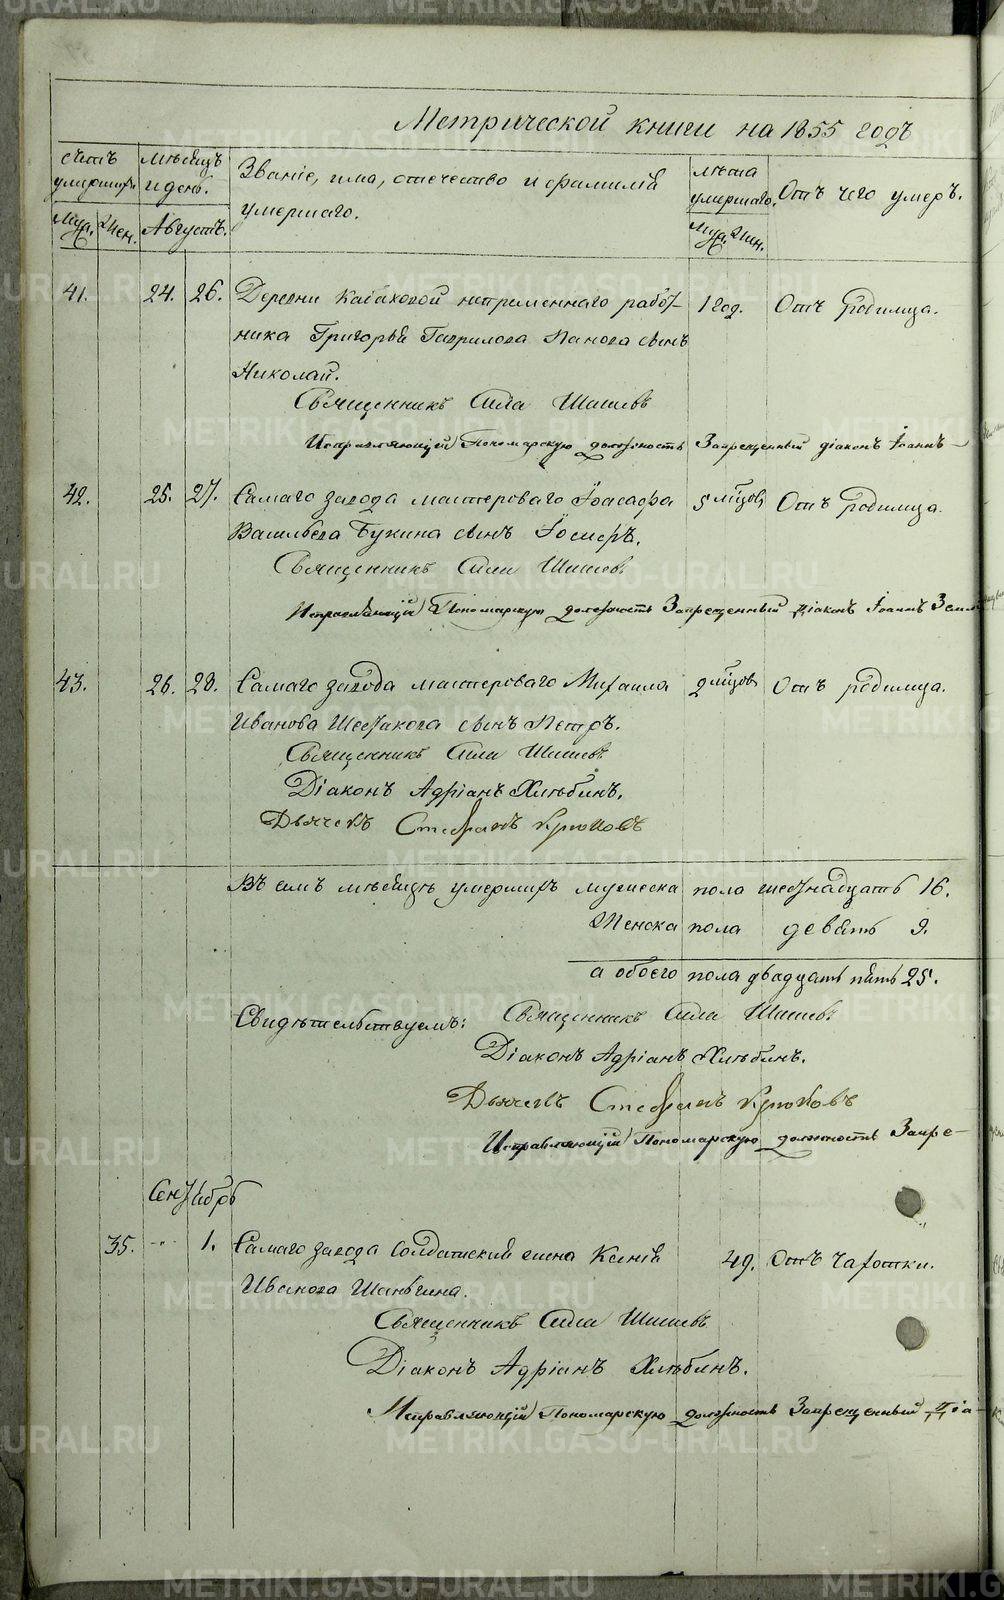 Метрической книги на 1855 годъ
счетъ умершихъ
мѣсяцъ и день.
Званіе, имя, отечество и фамилія умершаго.
лѣта умершаго.
Отъ чего умеръ.
Муж. Жен.
Августъ.
Муж. Жен.
41. 24. 26. Деревни Кабаковой непременнаго работ-
1 год. Отъ родимца.
ника Григорья Гаврилова Панова сынъ
Николай.
Священникъ Сила Шишевъ
Исправляющій Пономарскую должность Запрещенный діаконъ Іоаннъ
42. 25. 27. Самаго завода мастероваго Іоасафа
5 мѣсцов. Отъ родимца.
Васильева Букина сынъ Іосифъ.
Священникъ Сила Шишев.
Исправляющій Пономарскую должность Запрещенный Діаконъ Іоаннъ
43. 26. 28. Самаго завода мастероваго Михаила
2 мѣсцов. Отъ родимца.
Иванова Шестакова сынъ Петръ.
Священникъ Сила Шишевъ
Діаконъ Адріанъ Хлѣбинъ.
Дьячекъ Стефанъ Крюковъ
Въ семъ мѣсяцѣ умершихъ мужеска пола шестнадцать 16.
Женска пола девять 9.
а обоего пола двадцать пять 25.
Свидѣтельствуемъ: Священникъ Сила Шишевъ
Діаконъ Адріанъ Хлѣбинъ.
Дьячекъ Стефанъ Крюковъ
Исправляющій Пономарскую должность Запре-
Сентябрь
35. 1. Самаго завода Солдатский жена Ксенія
49. Отъ чахотки.
Иванова Шаньгина.
Священникъ Сила Шишевъ
Діаконъ Адріанъ Хлѣбинъ.
Исправляющій Пономарскую должность Запрещенный Діа-
METRIKI.GASO-URAL.RU